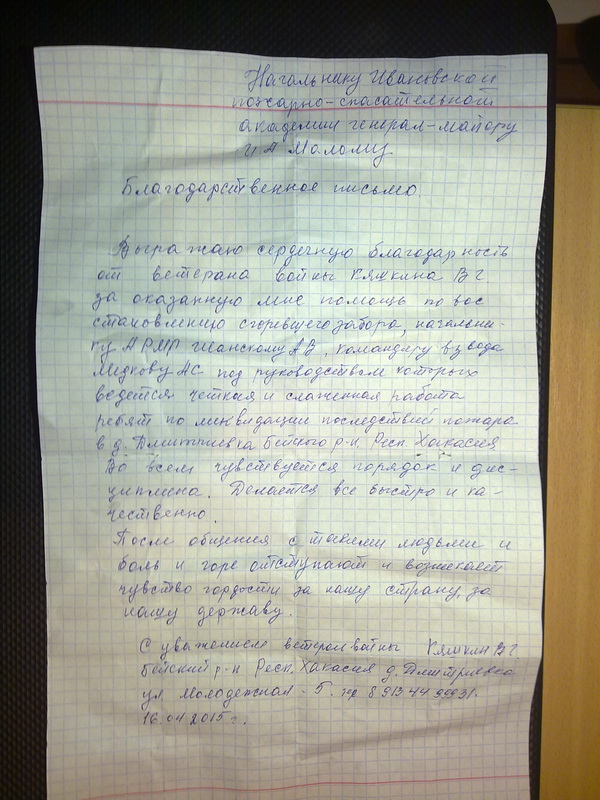 Начальнику Ивановской
пожарно-спасательной
академии генерал-майору
И А Малому
Благодарственное письмо
Выражаю сердечную благодарность
от ветерана войны Кяшкина В Г
за оказанную мне помощь по вос
становлению сгоревшего забора, начальни-
ку АВ, командиру взвода
Медкову АС под руководством которых
ведется четкая и слаженная работа
ребят по ликвидации последствий пожара
в д. Дмитриевка Бейского р-н Респ Хакасия
Во всем чувствуется порядок и дис-
циплина. Делается все быстро и ка-
чественно.
После общения с такими людьми и
боль и горе отступают и возникает
чувство гордости за нашу страну, за
нашу державу.
С уважением ветеран войны Кяшкин В Г
Бейский р-н Респ. Хакасия д. Дмитриевка
ул Молодежная - 5.
16.04 2015 г.